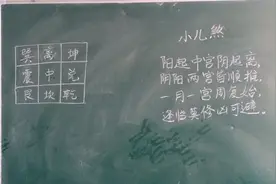 小儿煞
巽离坤
震中兑
艮坎乾
阳起中宫阴起离
阴阳两宫皆顺推
一月一宫周复始
逢临莫修凶可避。